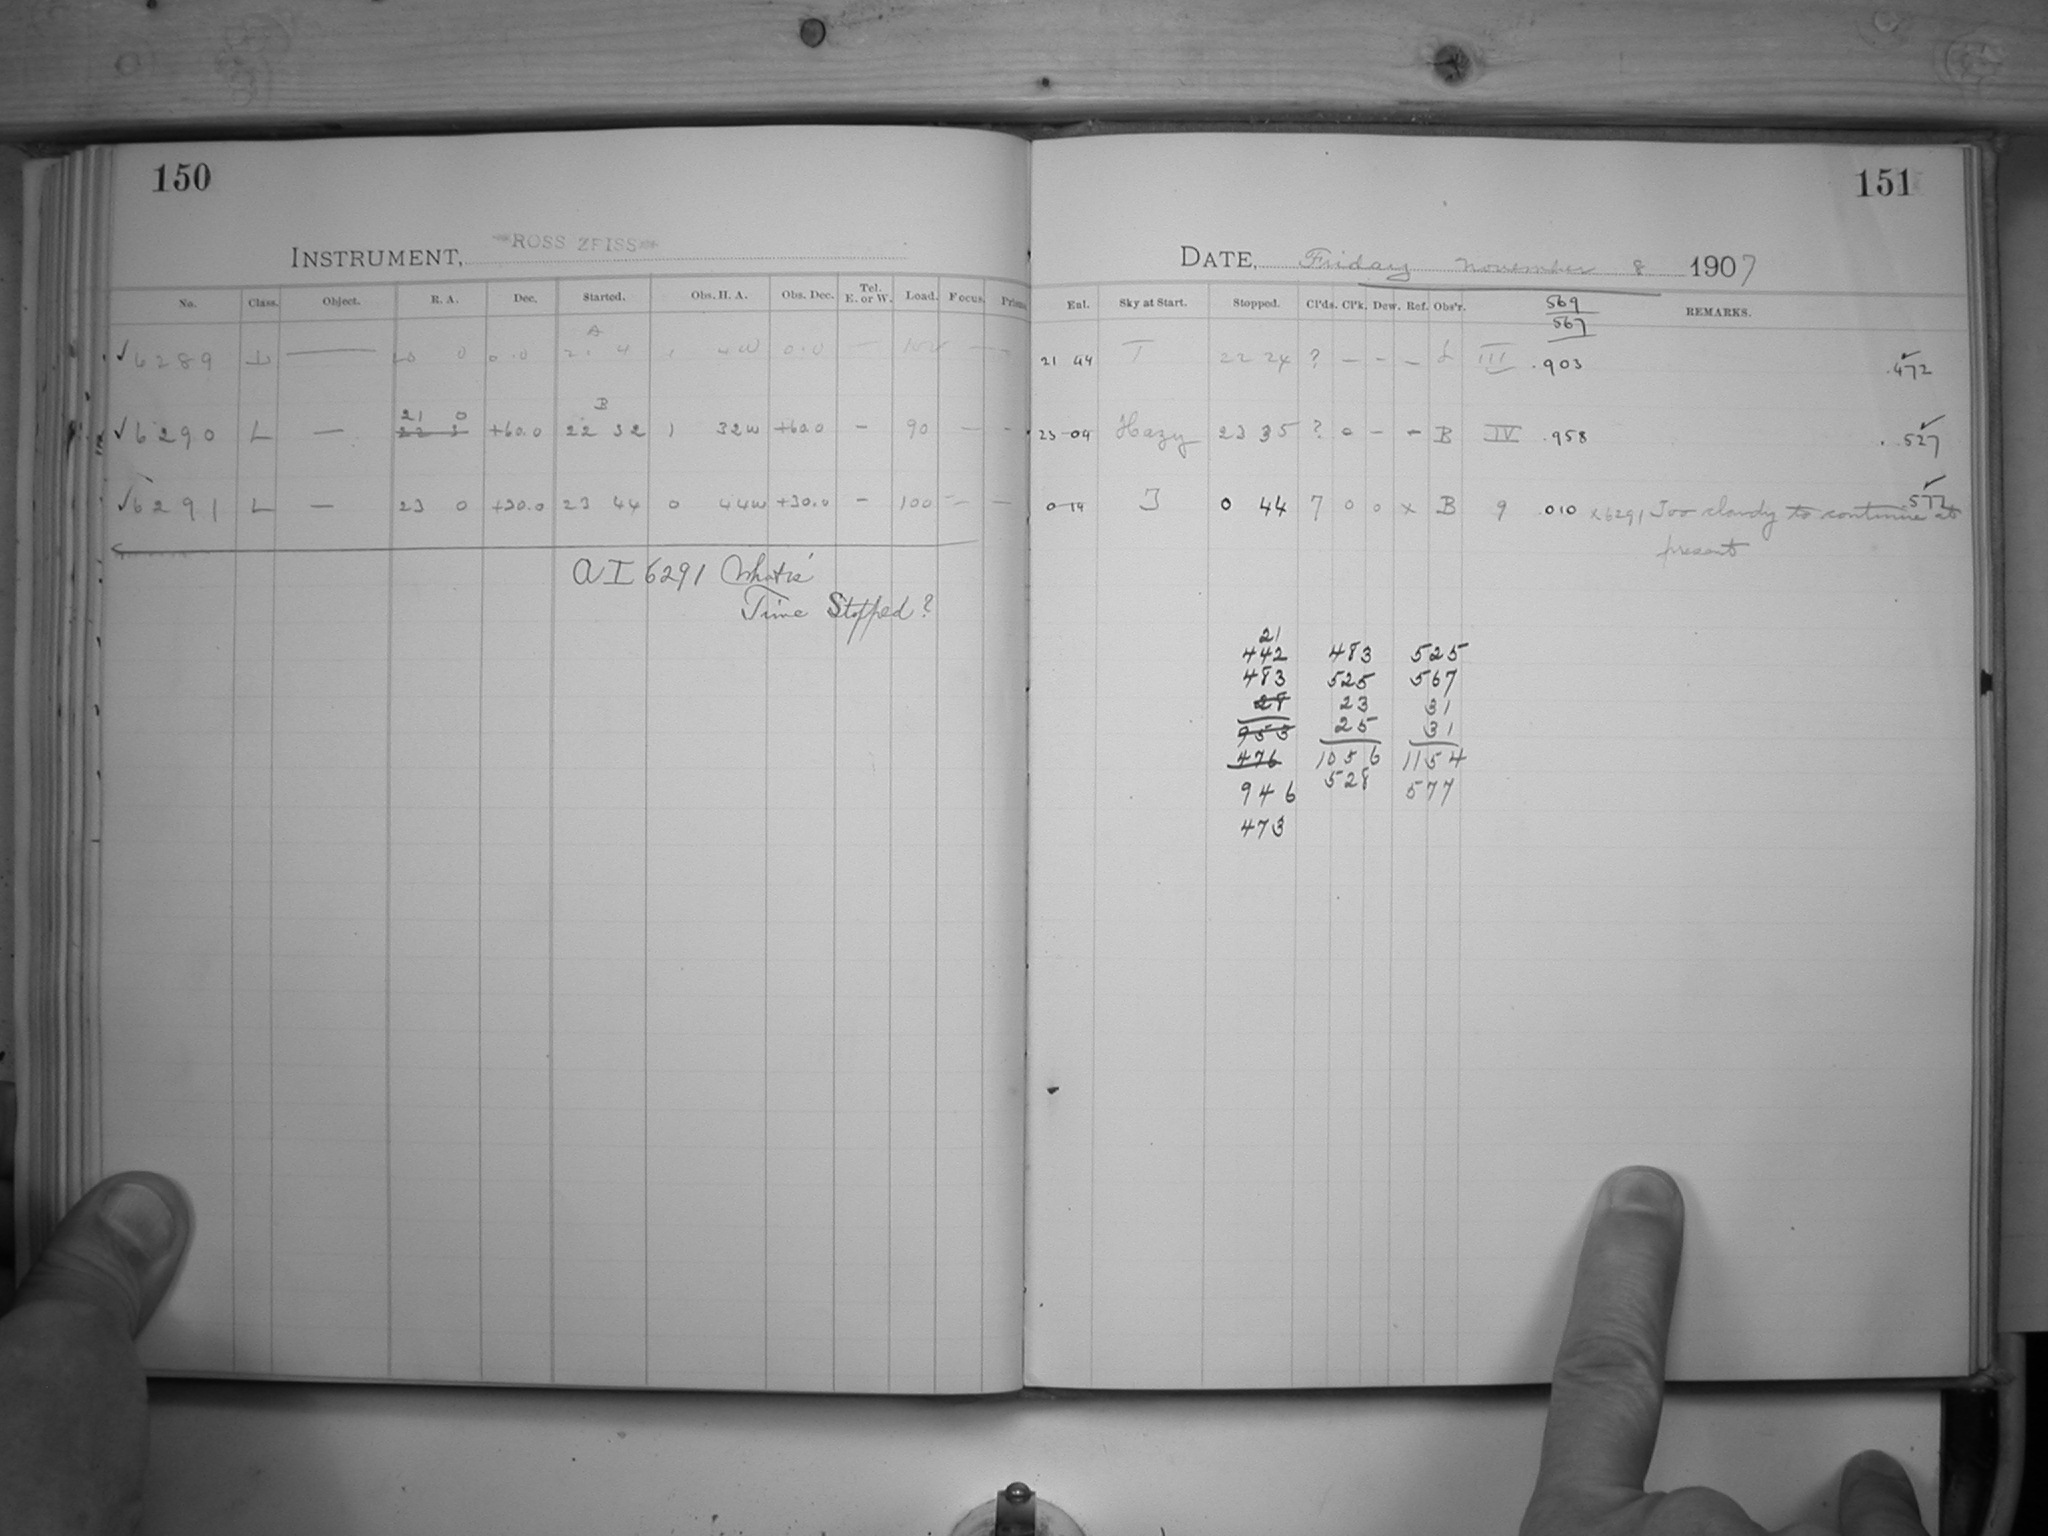 150
INSTRUMENT, ROSS ZEISS
No. Class. Object. R. A. Dec. Started. Obs. H. A. Obs. Dec. Tel. E. or W. Load. Focus. Prisms.
A
✓6289 L — 20 0 0.0 21 4 1 4W 0.0 — — —
B
21 0
✓6290 L — 22 3 +60.0 22 32 1 32W +60.0 – 90 — –
✓6291 L — 23 0 +30.0 23 44 0 44W +30.0 – 100 — —
AI 6291 What is
Time Stopped?
151
DATE, Friday November 8 1907
569
567
Ent. Sky at Start. Stopped. Cl'ds. Cl'k. Dew. Ref. Obs'r. REMARKS.
21 44 22 24 ? – – – L III .903 .472
23 04 Hazy 23 35 ? 0 – – B IV .958 .527
0 14 0 44 7 0 0 x B 9 .010 x6291 Too cloudy to continue at .577
present
21
442 483 525
483 525 567
28 23 31
953 25 31
476 1056 1154
946 528 577
473